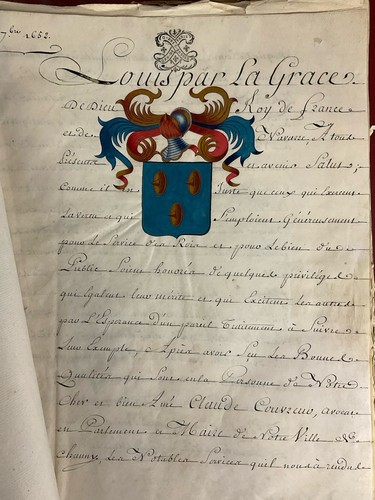 7bre 1652.
Louis par La Grace
De Dieu Roy de france
et de Navarre, A tous
présents et avenir Salut;
Comme il est Juste que ceux qui Exercent
La vertu et qui S'emploient Généreusement
pour Le Service des Rois et pour Le bien du
Public Soient honorés de quelques privilèges
que Egalent leur mérite et qui Excitent Les autres
par L'Esperance d'un pareil à Suivre
Leur Exemple, Après avoir Sçu Les Bonnes
Qualités qui Sont en la Personne de Notre
Cher et bien Amé Claude Couvreur, avocat
en Parlement et Maire de Notre Ville de
Chauny, Les Notables Services qu'il nous a rendus